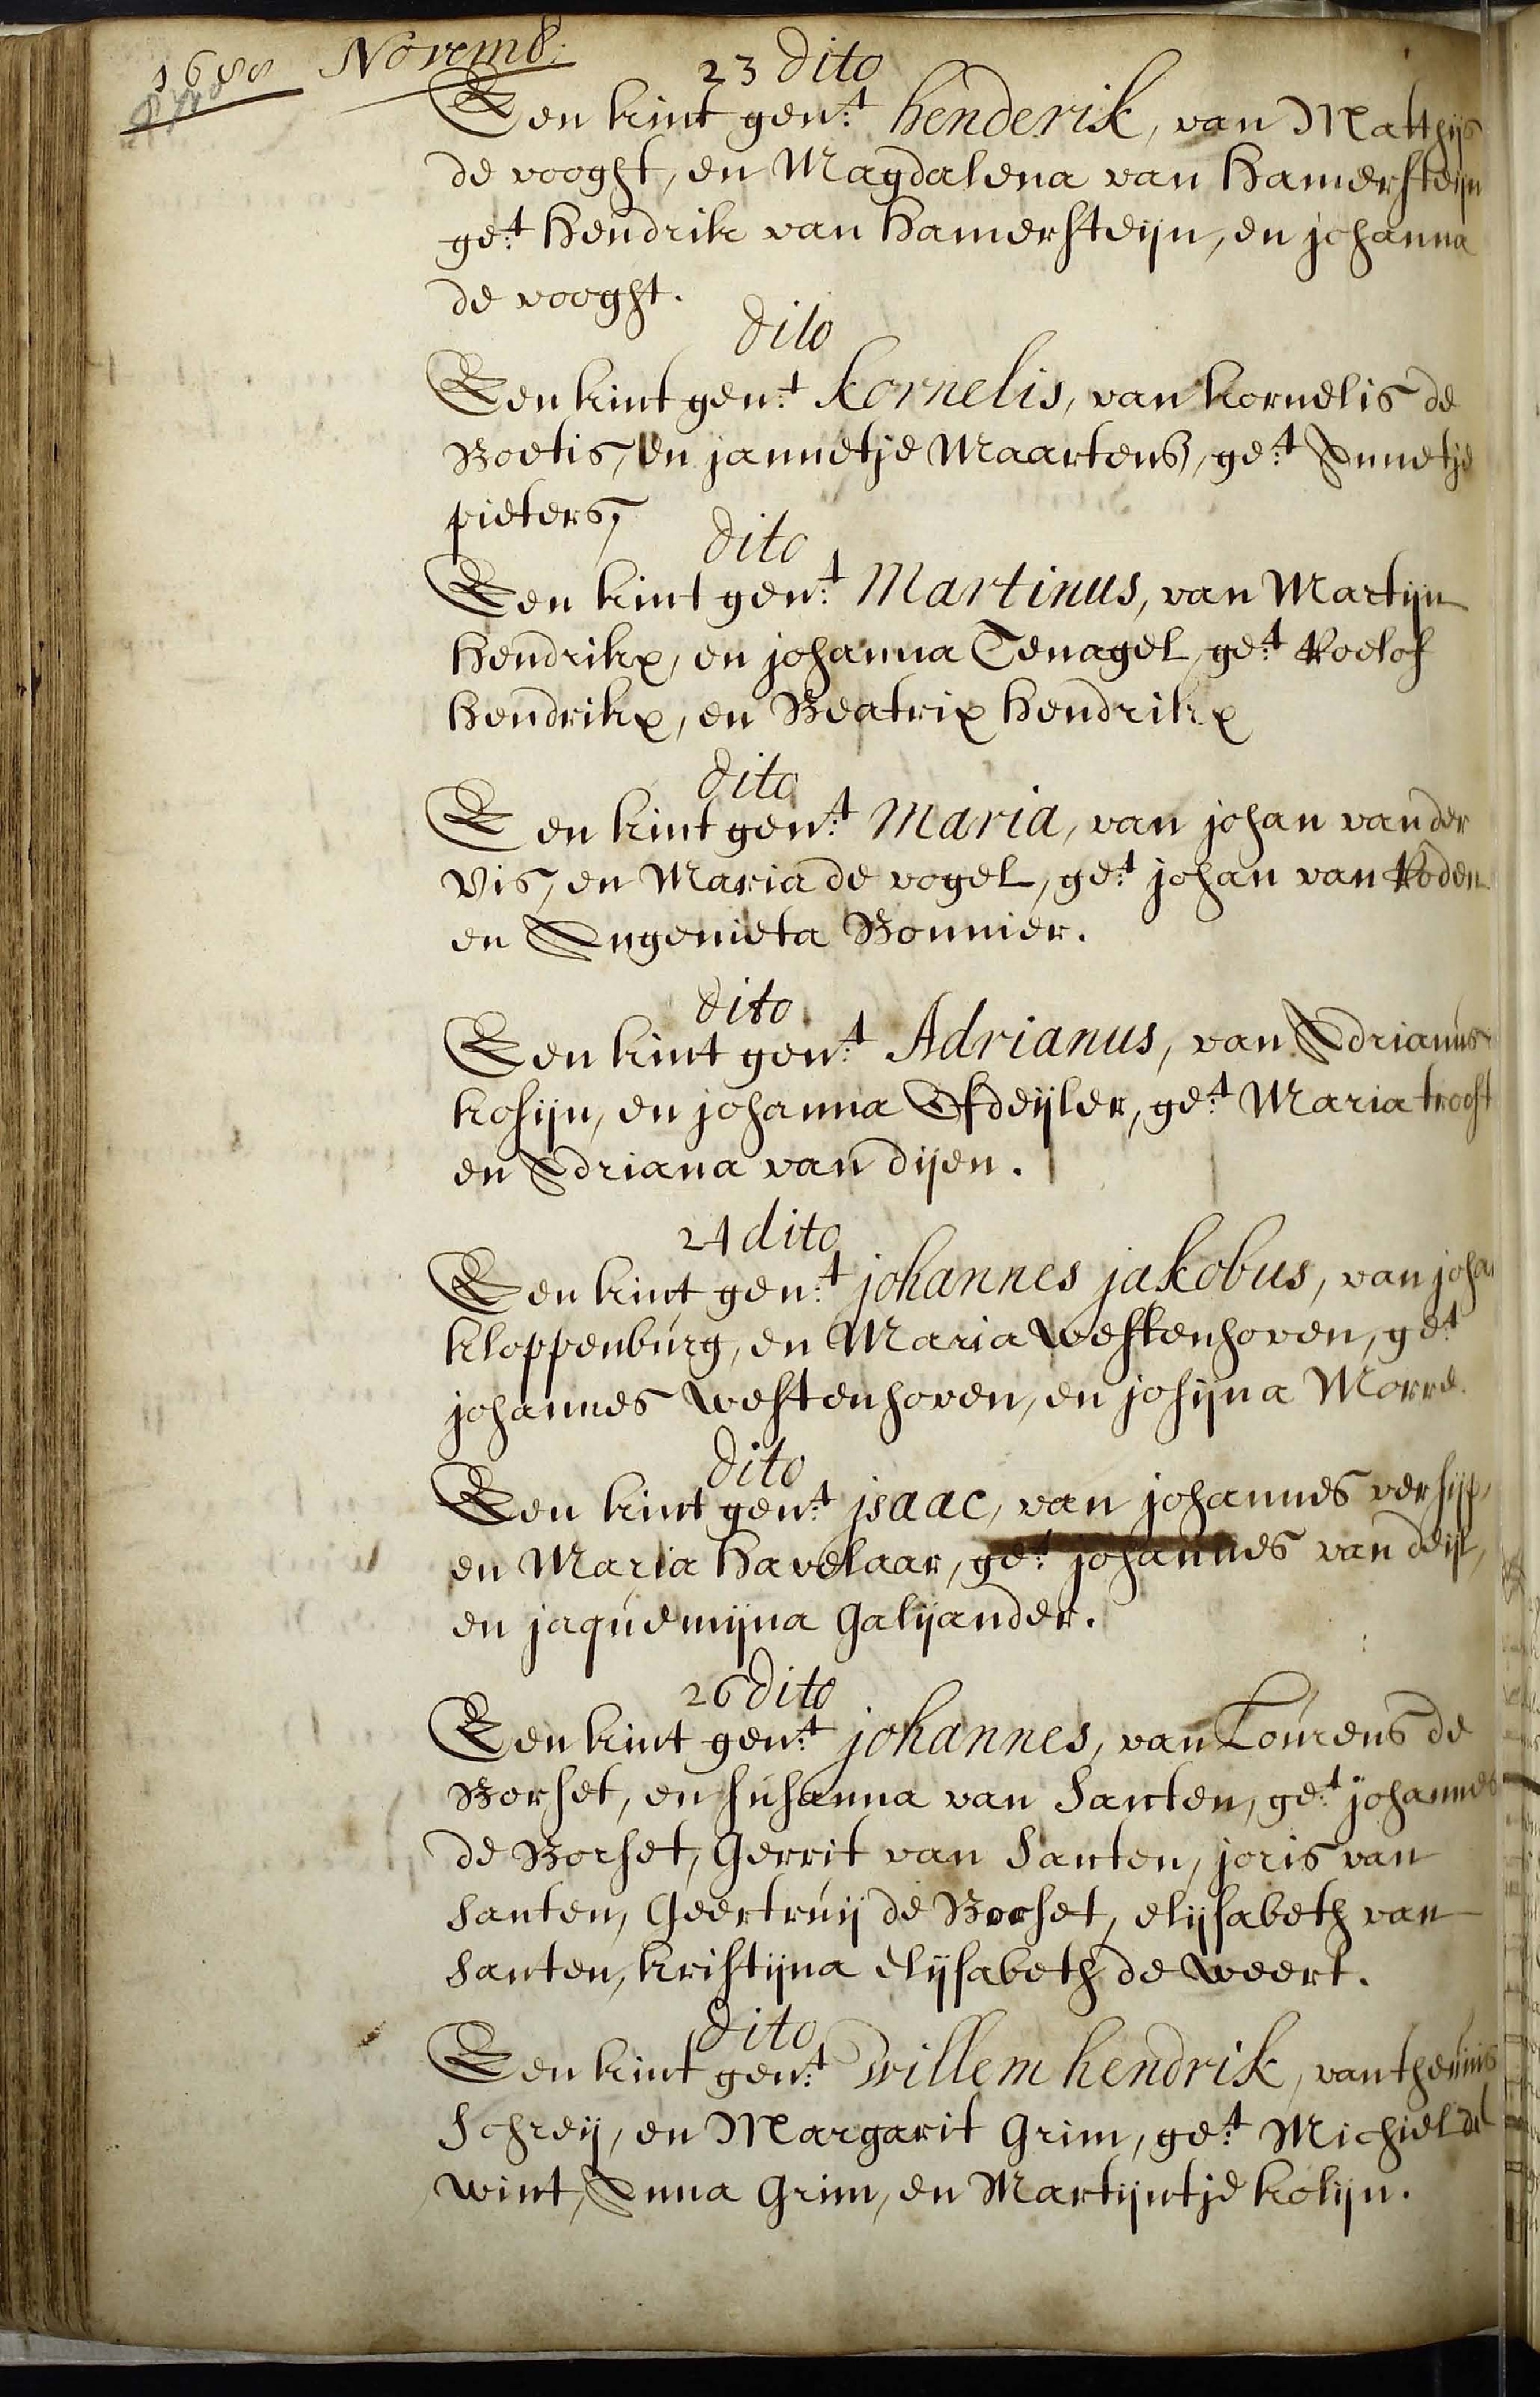 1688 Novemb:
23 dito
Een kint gen:t henderik, van Matthijs
de vooght, en Magdalena van Hamersteijn
ge:t Hendrik van Hamersteijn, en johanna
de vooght.
dito
Een kint gen:t kornelis, van kornelis de
Boetis, en jannetje Maartens, ge:t Annetje
pieters,
dito
Een kint gen:t Martinus, van Martijn
Hendrikx, en johanna Tenagel, ge:t Roelof
Hendrikx, en Beatrix Hendrikx
dito
Een kint gen:t Maria, van johan vander
Vis, en Maria de vogel, ge:t johan van Roden
en Angenieta Bonnier.
dito
Een kint gen:t Adrianus, van Adrianus
kosijn, en johanna Ofdeijler, ge:t Maria troost
en Adriana van dijen.
24 dito
Een kint gen:t johannes jakobus, van johan
kloppenburg, en Maria Westenhoven, ge:t
johannes Westenhoven, en josijna Morre.
dito
Een kint gen:t jsaac, van johannes versijp,
en Maria Havelaar, ge:t johannes van deijl,
en jaquemijna Galijander.
26 dito
Een kint gen:t johannes, van Lourens de
Borset, en susanna van Santen, ge:t johannes
de Borset, Gerrit van Santen, joris van
Santen, Geertruij de Borset, elijsabeth van
Santen, kristijna elijsabeth de weert.
dito
Een kint gen:t willem hendrik, van theunis
Schreij, en Margarit Grim, ge:t Michiel de
wint, Anna Grim, en Martijntje kolijn.